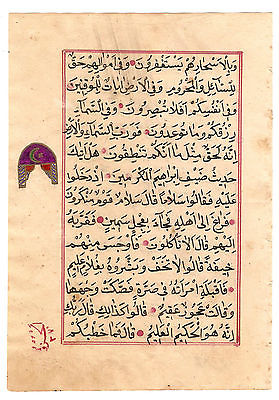 وَبِالْاَسْحَارِهُمْ يَسْتَغْفِرُونَ وَفِي اَمْوَالِهِمْ حَقٌّ
لِلسَّائِلِ وَالْمَحْرُومِ وَفِي الْاَرْضِ اٰيَاتٌ لِلْمُوقِنِينَ
وَفِي اَنْفُسِكُمْ اَفَلَا تُبْصِرُونَ وَفِي السَّمَاءِ
رِزْقُكُمْ وَمَا تُوعَدُونَ فَوَرَبِّ السَّمَاءِ وَالْاَرْضِ
اِنَّهُ لَحَقٌّ مِثْلَ مَا اَنَّكُمْ تَنْطِقُونَ هَلْ اَتٰيكَ
حَدِيثُ ضَيْفِ اِبْرٰهِيمَ الْمُكْرَمِينَ اِذْ دَخَلُوا
عَلَيْهِ فَقَالُوا سَلَامًا قَالَ سَلَامٌ قَوْمٌ مُنْكَرُونَ
فَرَاغَ اِلٰى اَهْلِهِ فَجَاءَ بِعِجْلٍ سَمِينٍ فَقَرَّبَهُ
اِلَيْهِمْ قَالَ اَلَا تَأْكُلُونَ فَاَوْجَسَ مِنْهُمْ
خِيفَةً قَالُوا لَا تَخَفْ وَبَشَّرُوهُ بِغُلَامٍ عَلِيمٍ
فَاَقْبَلَتِ امْرَاَتُهُ فِي صَرَّةٍ فَصَكَّتْ وَجْهَهَا
وَقَالَتْ عَجُوزٌ عَقِيمٌ قَالُوا كَذٰلِكِ قَالَ رَبُّكِ
اِنَّهُ هُوَ الْحَكِيمُ الْعَلِيمُ قَالَ فَمَا خَطْبُكُمْ